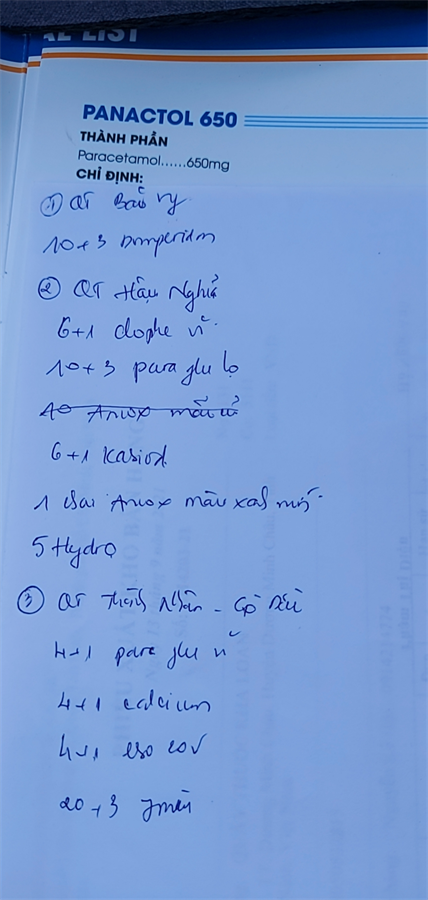 AL LIST
PANACTOL 650
THÀNH PHẦN
Paracetamol......650mg
CHỈ ĐỊNH:
① QT Bảo Vy
10+3 Domperidon
② QT Hậu Nghĩa
6+1 clophe vĩ
10+3 para glu lọ
10 Anvox mẫu cũ
6+1 Kasiod
1 chai Anvox màu xanh mới
5 Hydro
③ QT Thành Nhân - Gò Dầu
4+1 para glu vĩ
4+1 calcium
4+1 eso
20+3